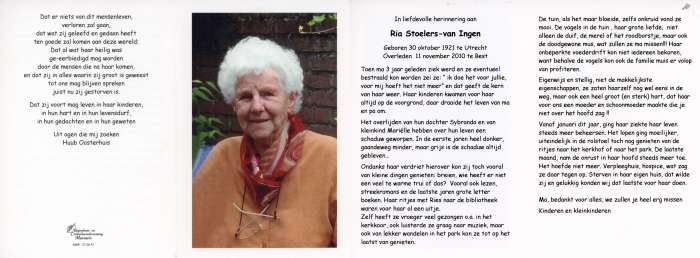 Dat er niets van dit mensenleven,
verloren zal gaan,
dat wat zij geleefd en gedaan heeft
ten goede zal komen aan deze wereld.
Dat al wat haar heilig was
ge-eerbiedigd mag worden
door de mensen die na haar komen,
en dat zij in alles waarin zij groot is geweest
tot ons mag blijven spreken
juist nu zij gestorven is.
Dat zij voort mag leven in haar kinderen,
in hun hart en in hun levensdurf,
in hun gedachten en in hun geweten
Uit ogen die mij zoeken
Huub Oosterhuis
In liefdevolle herinnering aan
Ria Stoelers-van Ingen
Geboren 30 oktober 1921 te Utrecht
Overleden 11 november 2010 te Best
Toen ma 3 jaar geleden ziek werd en ze eventueel
bestraald kon worden zei ze: " ik doe het voor jullie,
voor mij hoeft het niet meer" en dat geeft de kern
van haar weer. Haar kinderen kwamen voor haar
altijd op de voorgrond, daar draaide het leven van ma
en pa om.
Het overlijden van hun dochter Sybranda en van
kleinkind Mariëlle hebben over hun leven een
schaduw geworpen. In de eerste jaren heel donker,
gaandeweg minder, maar grijs is de schaduw altijd
gebleven...
Ondanks haar verdriet hierover kon zij toch vooral
van kleine dingen genieten: breien, wie heeft er niet
een veel te warme trui of das? Vooral ook lezen,
streekromans en de laatste jaren grote letter
boeken. Haar ritjes met Ries naar de bibliotheek
waren voor haar al een uitje.
Zelf heeft ze vroeger veel gezongen o.a. in het
kerkkoor, ook luisterde ze graag naar muziek, maar
ook van lekker wandelen in het park kon ze tot op het
laatst van genieten.
De tuin, als het maar bloeide, zelfs onkruid vond ze
mooi. De vogels in de tuin , haar grote liefde, niet
alleen de duif, de merel of het roodborstje, maar ook
de doodgewone mus, wat zullen ze ma missen!!! Haar
onbeperkte voederdrift kon niet iedereen bekoren,
want behalve de vogels kon ook de familie muis er volop
van profiteren.
Eigenwijs en stellig, niet de makkelijkste
eigenschappen, ze zaten haarzelf nog wel eens in de
weg, maar ook een heel groot (en sterk) hart, dat haar
voor ons een moeder en schoonmoeder maakte die je
niet over het hoofd zag !!
Vanaf januari dit jaar, ging haar ziekte haar leven
steeds meer beheersen. Het lopen ging moeilijker,
uiteindelijk in de rolstoel toch nog genieten van de
ritjes naar het kerkhof of naar het park. De laatste
maand, nam de onrust in haar hoofd steeds meer toe.
Het hoefde niet meer. Verpleeghuis, hospice, wat zag
ze daar tegen op. Sterven in haar eigen huis, dat wilde
zij en gelukkig konden wij dat laatste voor haar doen.
Ma, bedankt voor alles, we zullen je heel erg missen
Kinderen en kleinkinderen